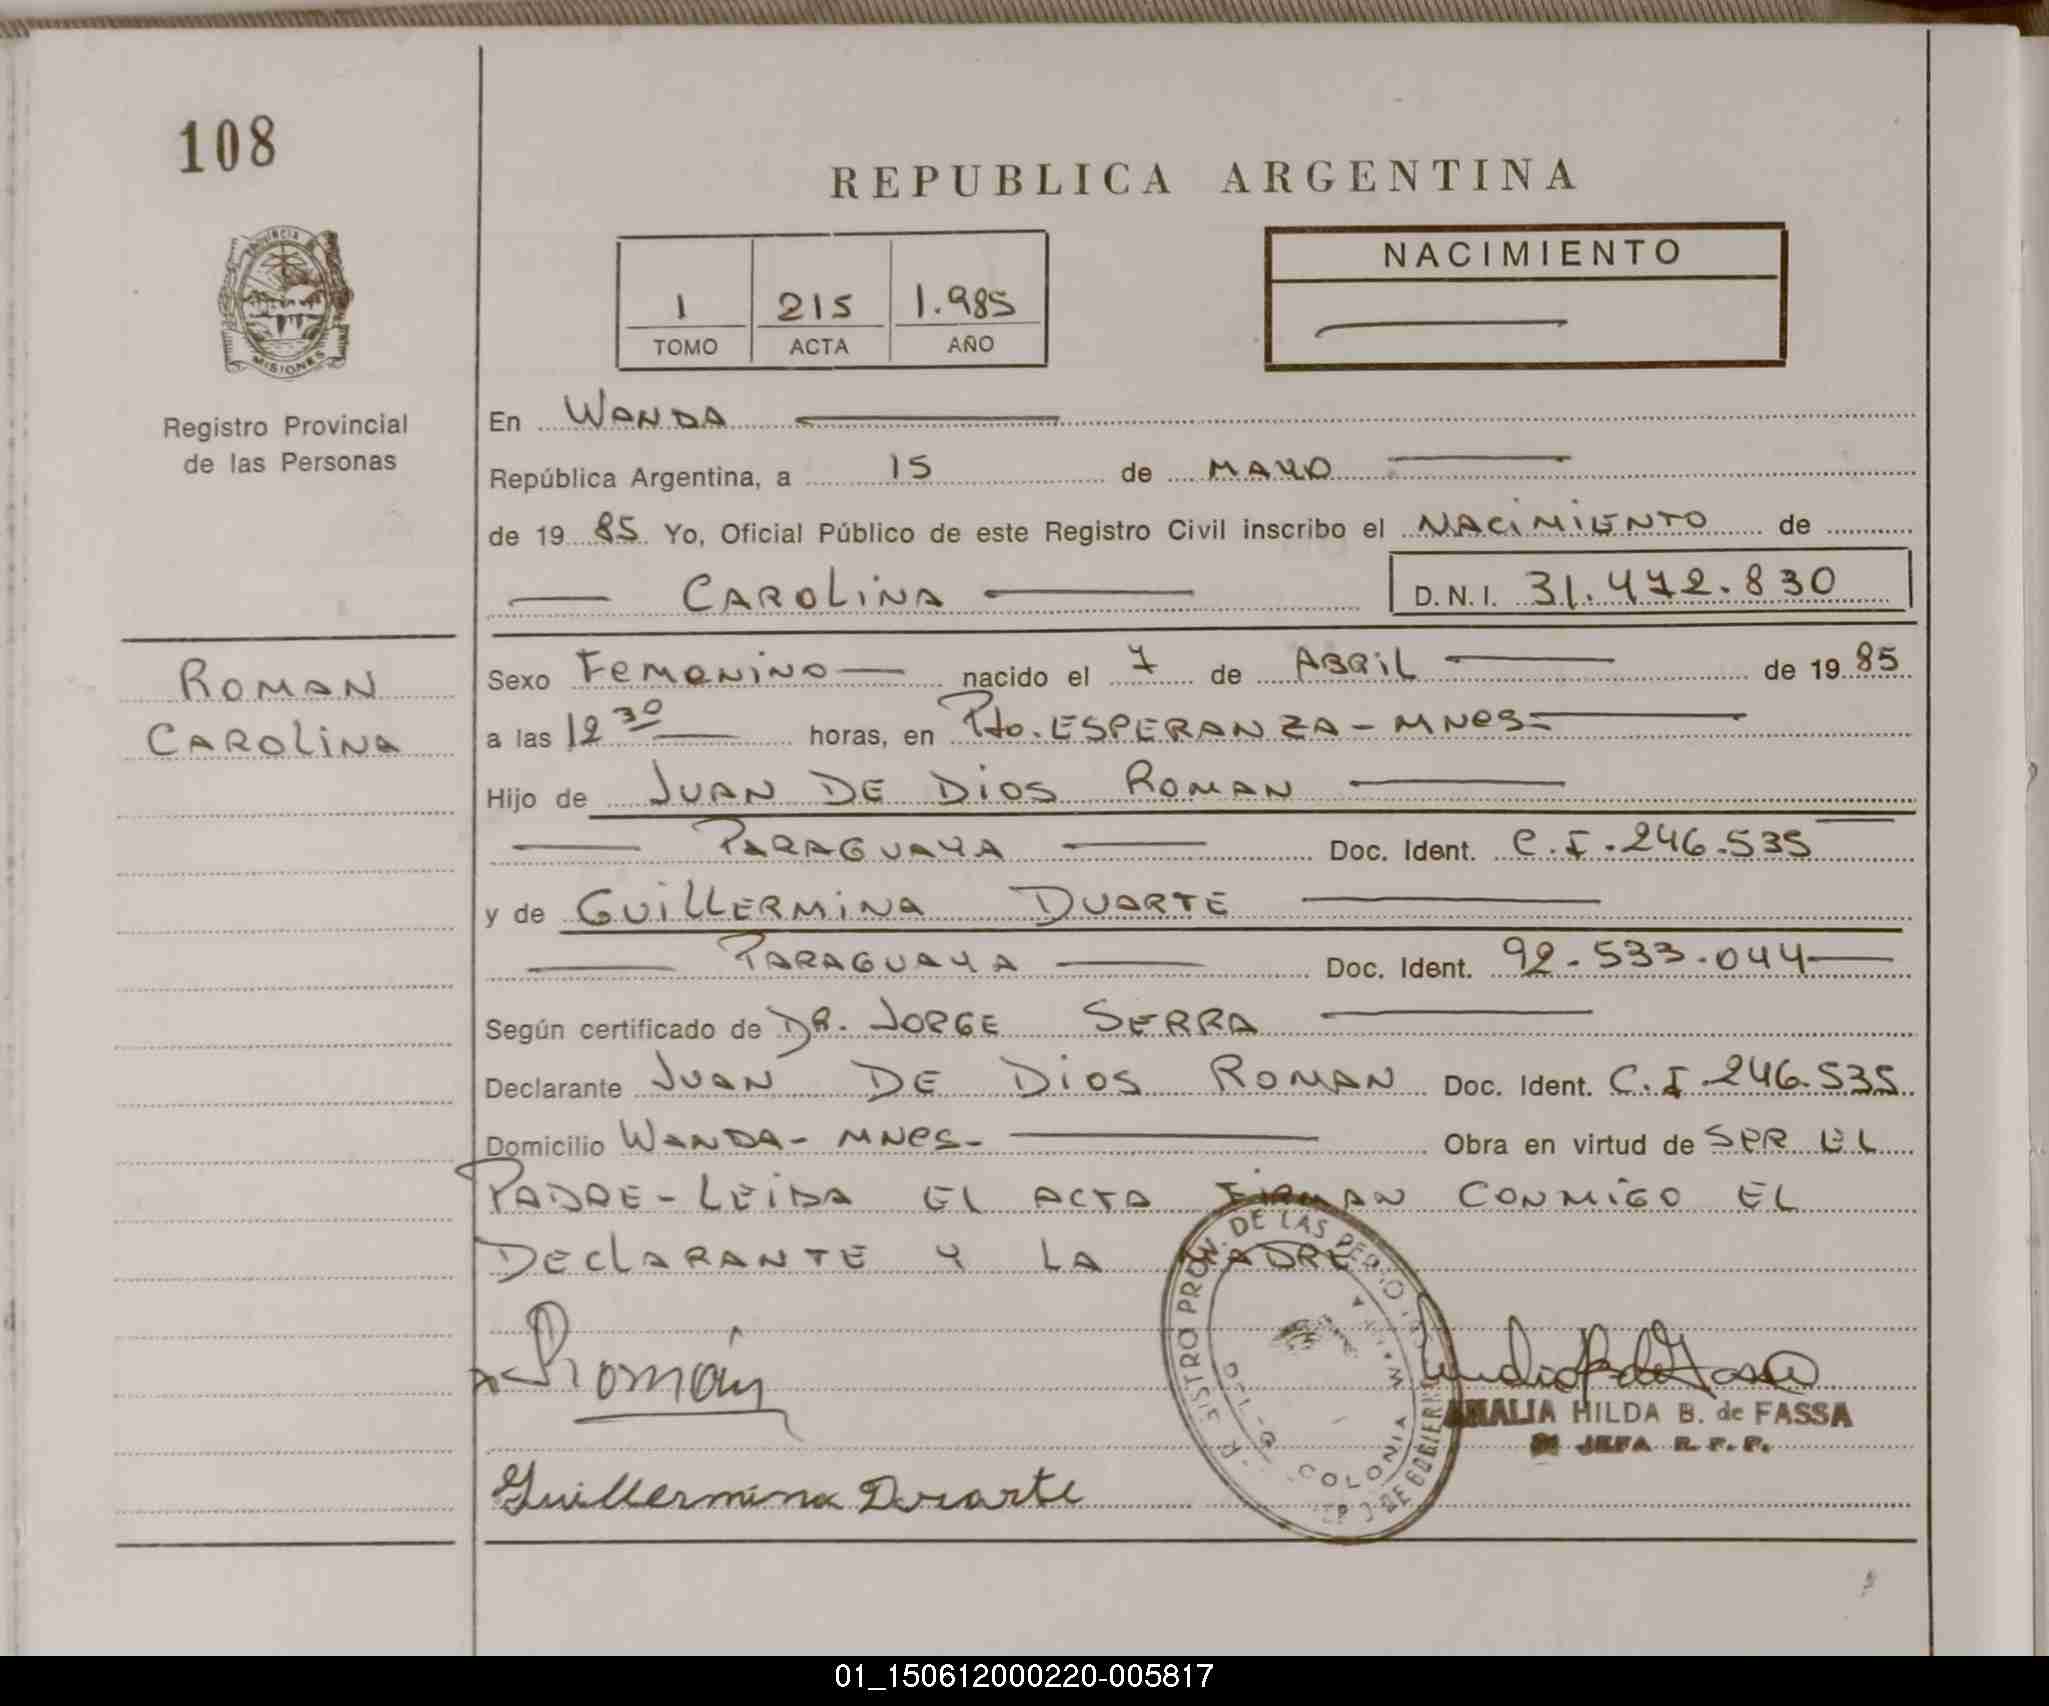 108
REPUBLICA ARGENTINA
PROVINCIA
MISIONES
Registro Provincial
de las Personas
1 215 1.985
TOMO ACTA AÑO
NACIMIENTO
En WANDA
República Argentina, a 15 de MAYO
de 19 85 Yo, Oficial Público de este Registro Civil inscribo el NACIMIENTO de
CAROLINA D.N.I. 31.472.830
ROMAN
CAROLINA
Sexo FEMENINO nacido el 7 de ABRIL de 19 85
a las 12 30 horas, en Pto. ESPERANZA - MNES-
Hijo de JUAN DE DIOS ROMAN
PARAGUAYA Doc. Ident. C.I. 246.535
y de GUILLERMINA DUARTE
PARAGUAYA Doc. Ident. 92.533.044
Según certificado de DR. JORGE SERRA
Declarante JUAN DE DIOS ROMAN Doc. Ident. C.I. 246.535
Domicilio WANDA - MNES- Obra en virtud de SER EL
PADRE - LEIDA EL ACTA FIRMAN CONMIGO EL
DECLARANTE Y LA MADRE
Román
Guillermina Duarte
DE LAS
COLONIA
DE GOBIERN
AMALIA HILDA B. de FASSA
JEFA R. P. P.
01_150612000220-005817